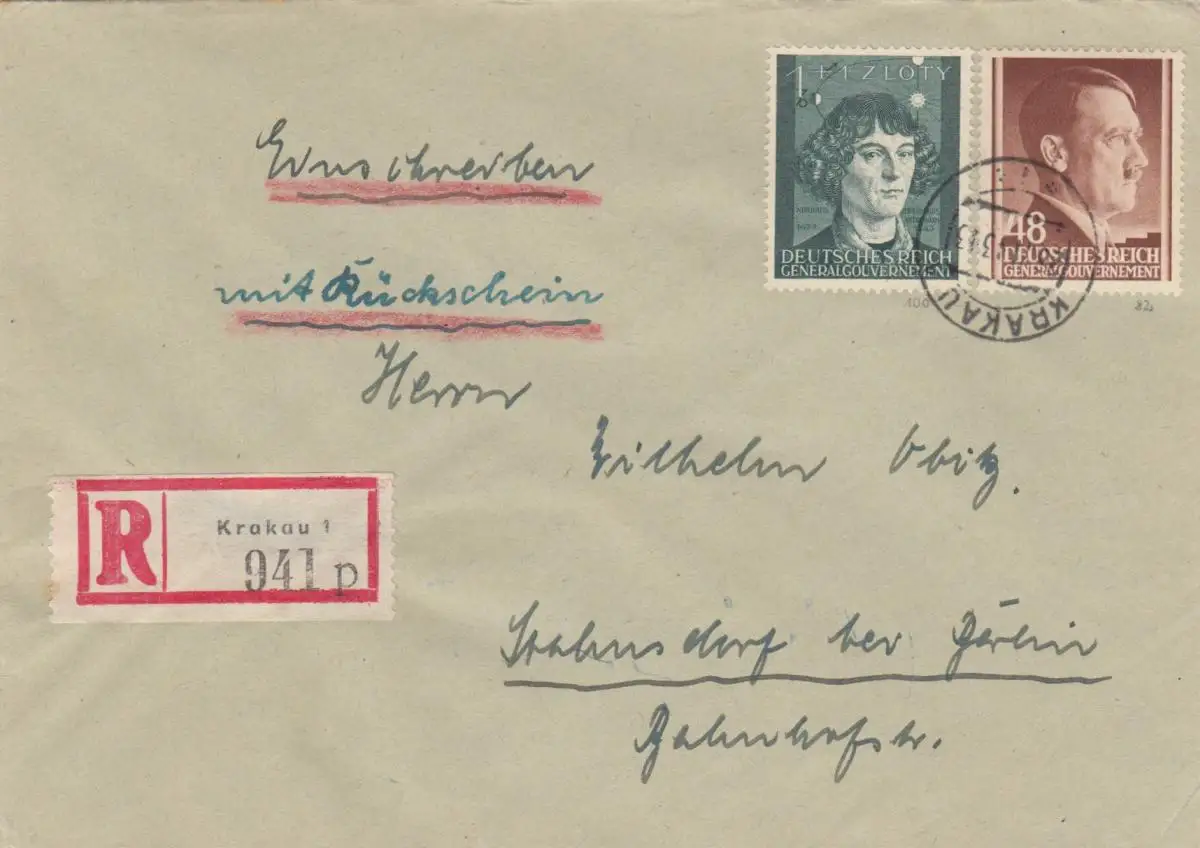 1 + 1 ZLOTY
DEUTSCHES REICH
GENERALGOUVERNEMENT
48
DEUTSCHES REICH
GENERALGOUVERNEMENT
KRAKAU
Einschreiben
mit Rückschein
Herrn
Wilhelm Obitz.
R
Krakau 1
941 p
Stahnsdorf bei Berlin
Bahnhofstr.